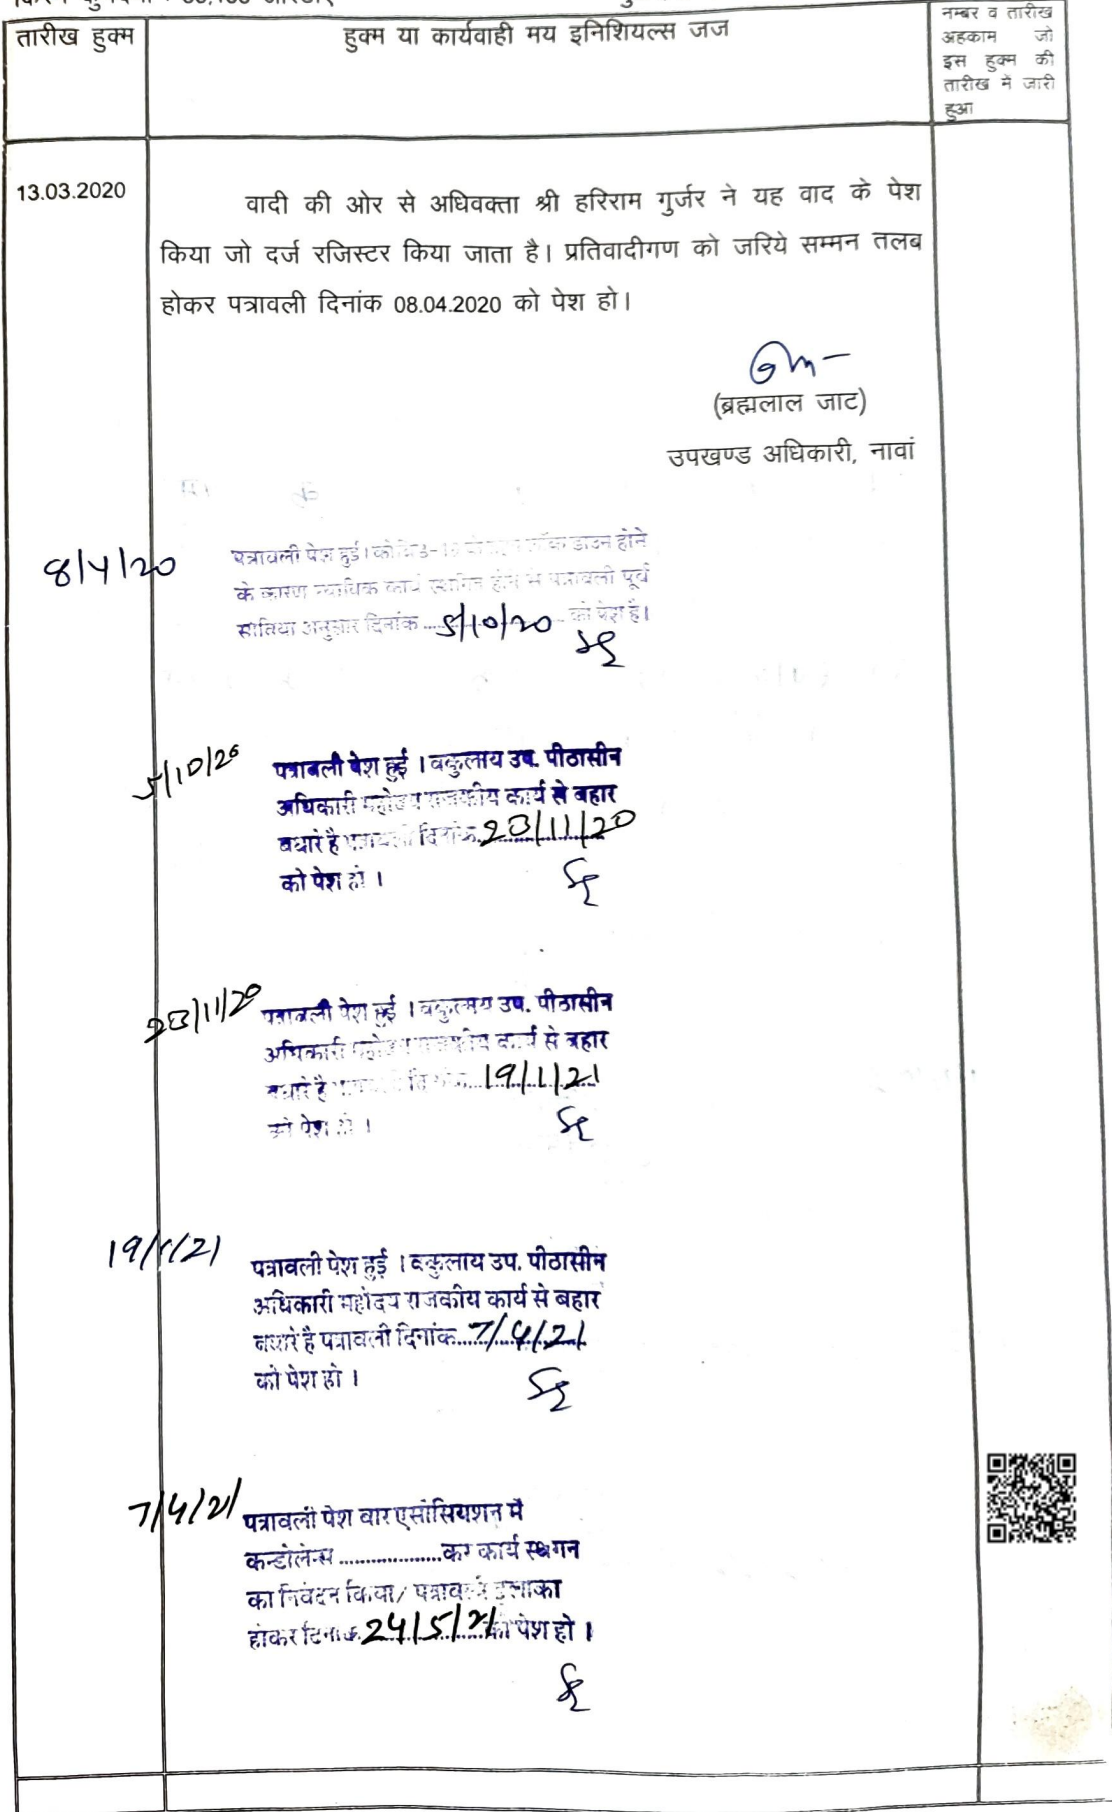 तारीख हुक्म
हुक्म या कार्यवाही मय इनिशियल्स जज
नम्बर व तारीख
अहकाम जो
इस हुक्म की
तारीख में जारी
हुआ
13.03.2020
वादी की ओर से अधिवक्ता श्री हरिराम गुर्जर ने यह वाद के पेश
किया जो दर्ज रजिस्टर किया जाता है। प्रतिवादीगण को जरिये सम्मन तलब
होकर पत्रावली दिनांक 08.04.2020 को पेश हो।
(ब्रह्मलाल जाट)
उपखण्ड अधिकारी, नावां
8/4/20
पत्रावली पेश हुई। कोविड-19 लॉक डाउन होने
के कारण न्यायिक कार्य स्थगित होने से पत्रावली पूर्व
अनुसार दिनांक 5/10/20 को पेश है।
5/10/20
पत्रावली पेश हुई । वकुलाय उप. पीठासीन
अधिकारी महोदय राजकीय कार्य से बहार
बधारे है पत्रावली दिनांक 23/11/20
को पेश हो ।
23/11/20
पत्रावली पेश हुई । वकुलाय उप. पीठासीन
अधिकारी महोदय राजकीय कार्य से बहार
बधारे है दिनांक 19/1/21
को पेश हो ।
19/1/21
पत्रावली पेश हुई । वकुलाय उप. पीठासीन
अधिकारी महोदय राजकीय कार्य से बहार
बधारे है पत्रावली दिनांक 7/4/21
को पेश हो ।
7/4/21
पत्रावली पेश वार एसोसियशन में
कन्डोलेन्स ...................कर कार्य स्थगन
का निवेदन किया/ पत्रावली इलाका
होकर दिनांक 24/5/21 को पेश हो ।